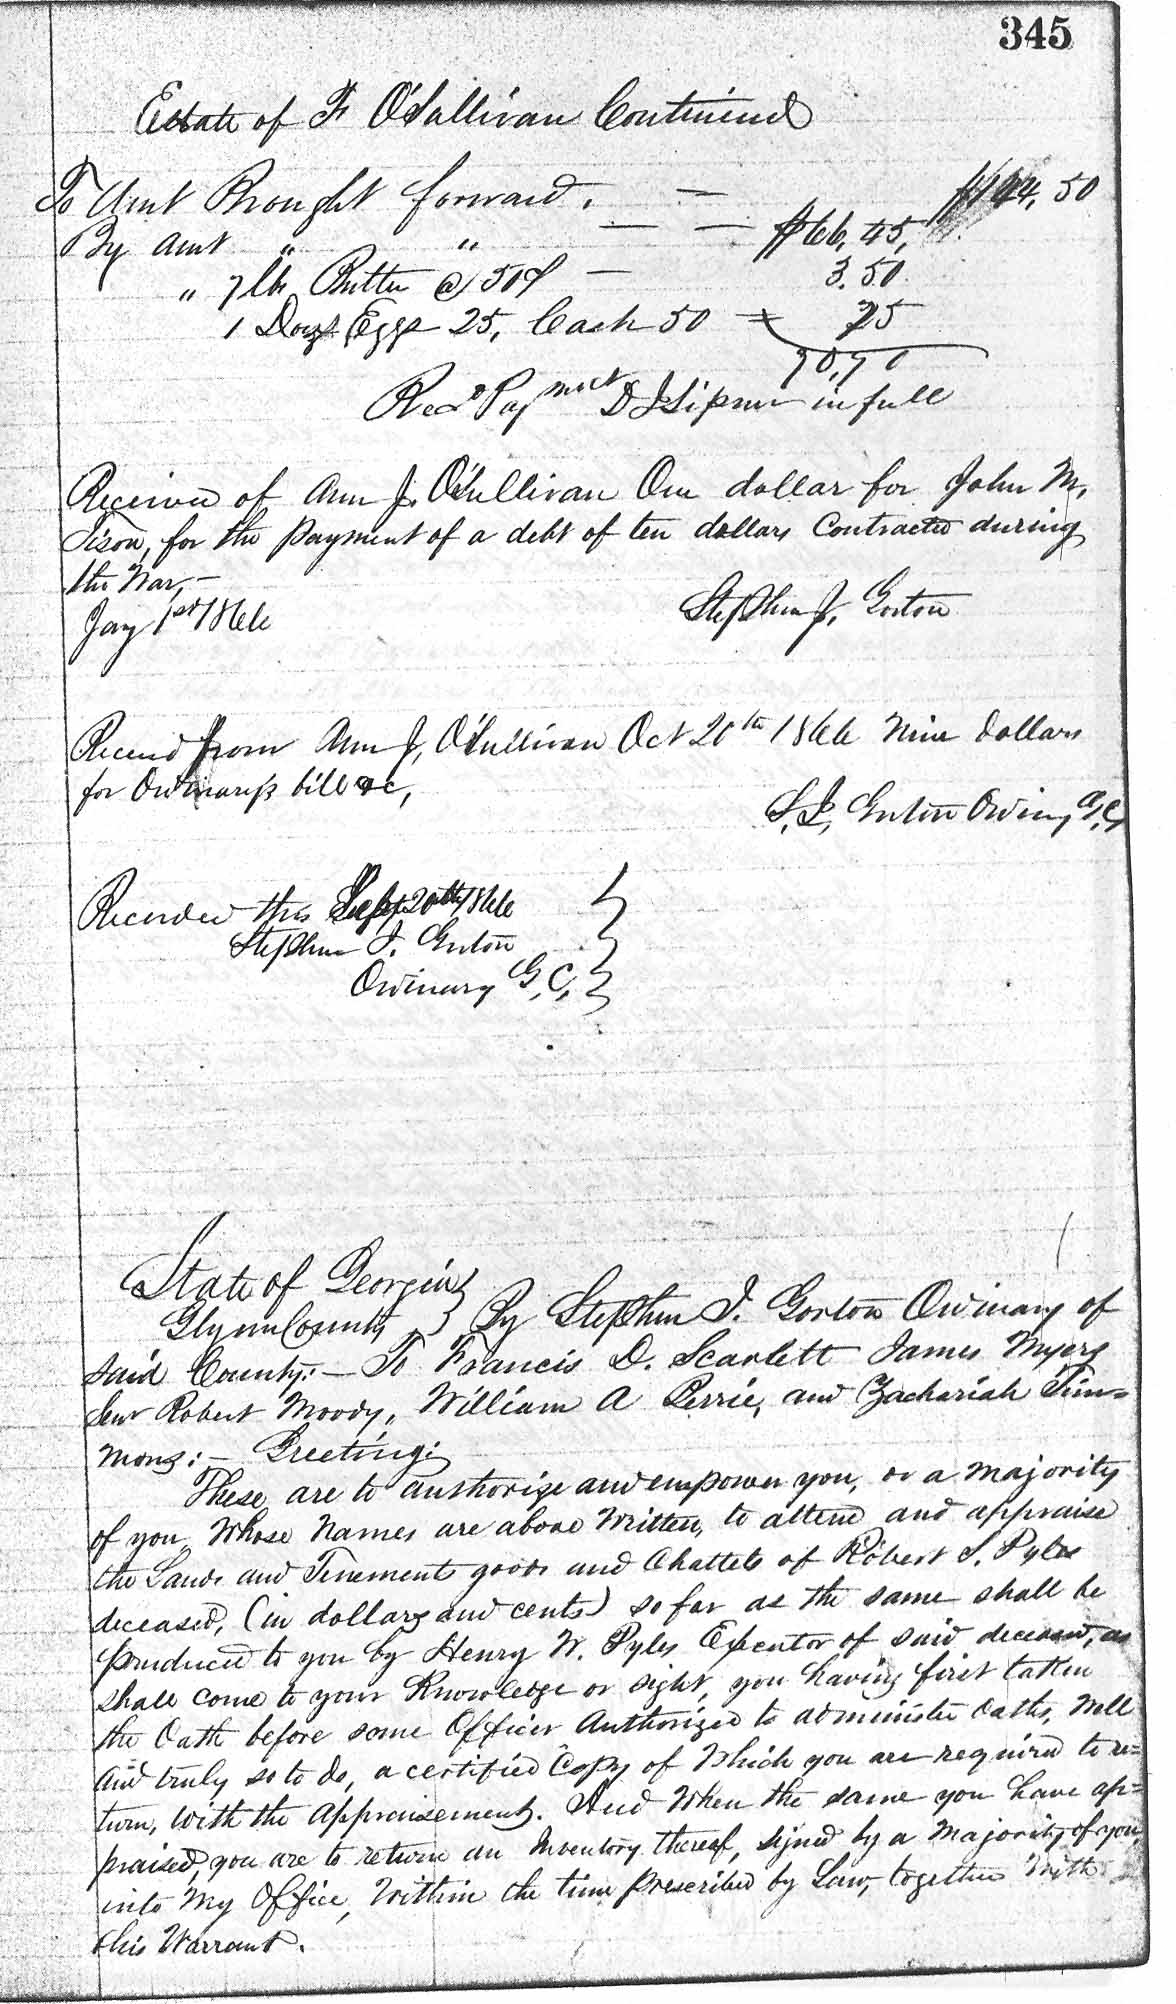 345
Estate of F O'Sullivan Continued
To Amt Brought forward. — $144.50
By Amt " " — — $66.45,
" 7 lbs Butter @ 50¢ — 3.50
1 Doz Eggs 25, Cash 50 = 75
70,70
Recd Payment D J in full
Received of Ann J. O'Sullivan One dollar for John M.
Tison, for the payment of a debt of ten dollars Contracted during
the War, —
Jany 1st 1866 Stephen J, Gorton
Received from Ann J, O'Sullivan Oct 20th 1866 Nine dollars
for Ordinary's bill &c,
S. J. Gorton Ordinary G,C,
Recorded this Sept 20th 1866
Stephen J. Gorton
Ordinary G,C,
State of Georgia
Glynn County } By Stephen J. Gorton Ordinary of
said County:— To Francis D. Scarlett James Myers
Senr Robert Moody, William A Berrie, and Zachariah Tim=
mons:— Greeting:
These are to authorize and empower you, or a majority
of you Whose Names are above Written, to attend and appraise
the Lands and Tenements goods and Chattels of Robert S. Pyles
deceased, (in dollars and cents) so far as the same shall be
produced to you by Henry W. Pyles Executor of said deceased, as
shall come to your Knowledge or sight, you having first taken
the Oath before some Officer Authorized to administer oaths, well
and truly so to do, a certified Copy of Which you are required to re=
turn, With the Appraisement. And When the same you have ap=
praised, you are to return an Inventory thereof, signed by a Majority of you
into My Office, Within the time prescribed by Law, together With
this Warrant.